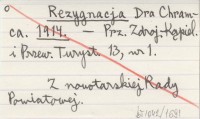 Rezygnacja Dra Chram-
ca. 1914. — Prz. Zdroj.-Kąpiel.
i Przew. Turyst. 13, nr 1.
Z nowotarskiej Rady
Powiatowej.